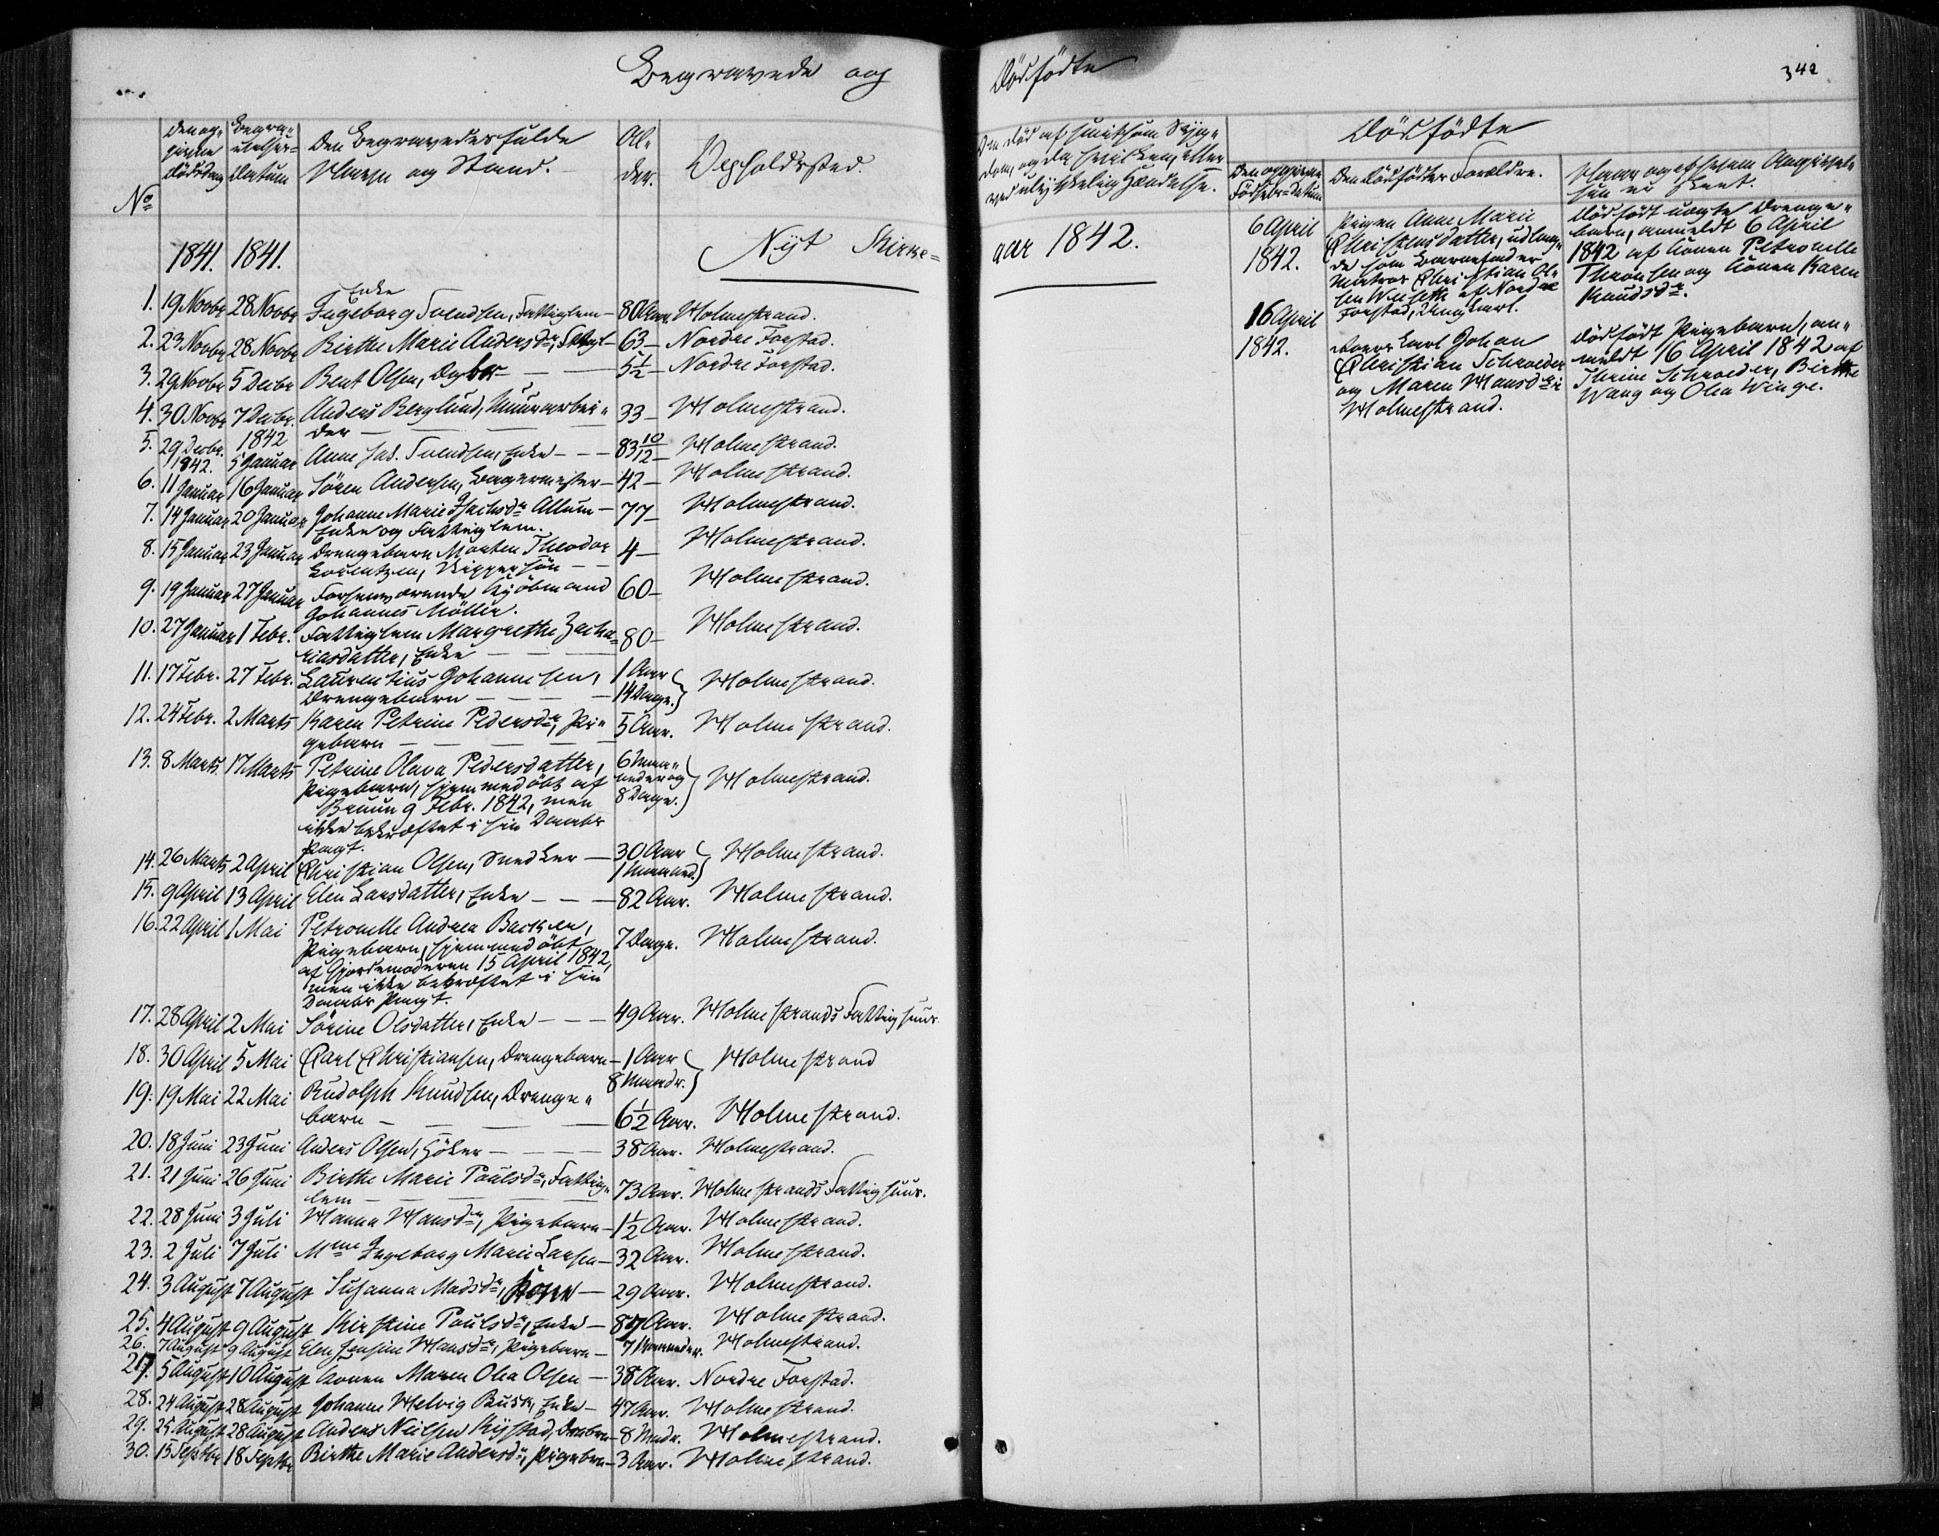 Begravede og Dödfödte
342
No
Den opgivne Dödsdag
Begravelses-Datum
Den Begravedes fulde Navn og Stand.
Alder.
Opholdssted.
Om död af smitsom Sygdom, og da hvilken, eller ved ulykkelig Hændelse.
Dödfödte
Den opgivne Födsels-Datum
Den Dödfödtes Forældre.
Naar og af hvem Angivelsen er skeet.
1841. 1841.
Nyt Kirke= aar 1842.
1. 19 Novbr 28 Novbr Enke Ingeborg Svendsen, Fattiglem — 80 Aar. Holmestrand.
2. 23 Novbr 28 Novbr Birthe Marie Andersdr, Fattigl — 63 — Nordre Forstad.
3. 29 Novbr 5 Decbr Bent Olsen, — 5½ — Nordre Forstad.
4. 30 Novbr 7 Decbr. Anders Berglund, Muurarbei-
der — 33 — Holmestrand.
1842
5. 29 Decbr. 5 Januar Anne Jak. Svendsen, Enke — 83 10/12 — Holmestrand.
1842.
6. 11 Januar 16 Januar Sören Andersen, Bagermester — 42 — Holmestrand.
7. 14 Januar 20 Januar Johanne Marie Isachsdr Allum —
Enke og Fattiglem. 77 — Holmestrand.
8. 15 Januar 23 Januar Drengebarn Morten Theodor
Lorentzen, Skippersön — 4 — Holmestrand.
9. 19 Januar 27 Januar Forhenværende Kjöbmand
Johannes Möller. 60 — Holmestrand.
10. 27 Januar 1 Febr. Fattiglem Margrethe Zacha-
riasdatter, Enke — 80 — Holmestrand.
11. 17 Febr. 27 Febr. Laurentius Johannesen,
Drengebarn — 1 Aar 14 Dage. Holmestrand.
12. 24 Febr. 2 Marts Karen Petrine Pedersdr, Pi-
gebarn — 5 Aar. Holmestrand.
13. 8 Marts. 17 Marts Petrine Olava Pedersdatter,
Pigebarn, hjemmedöbt af
Bruun 9 Febr. 1842, men
ikke bekræftet i sin Daabs
Pagt. 6 Maaneder og 8 Dage. Holmestrand.
14. 26 Marts 2 April Christian Olsen, Snedker — 30 Aar 1 Maaned. Holmestrand.
15. 9 April 13 April Elen Larsdatter, Enke — 82 Aar. Holmestrand.
16. 22 April 1 Mai Petronelle Andrea Backer,
Pigebarn, hjemmedöbt
af Gjordemoderen 15 April 1842,
men ikke bekræftet i sin
Daabs Pagt. 7 Dage. Holmestrand.
17. 28 April 2 Mai Sörine Olsdatter, Enke — 49 Aar. Holmestrands Fattighuus.
18. 30 April 5 Mai Carl Christiansen, Drengebarn — 1 Aar 8 Maandr. Holmestrand
19. 19 Mai 22 Mai Rudolph Knudsen, Drenge-
barn — 6½ Aar. Holmestrand.
20. 18 Juni 23 Juni Anders Olsen, Höker — 38 Aar. Holmestrand.
21. 21 Juni 26 Juni Birthe Marie Paulsdr, Fattig-
lem — 73 Aar. Holmestrands Fattighuus.
22. 28 Juni 3 Juli Hanna Hansdr, Pigebarn — 1½ Aar. Holmestrand.
23. 2 Juli 7 Juli Mme Ingeborg Marie Larsen — 32 Aar. Holmestrand.
24. 3 August 7 August Susanna Madsdr, Kone — 29 Aar. Holmestrand.
25. 4 August 9 August Kirstine Paulsdr, Enke — 87 Aar. Holmestrand.
26. 7 August 9 August Elen Jensine Hansdr, Pigebarn — 7 Maaneder. Holmestrand.
27. 5 August 10 August Konen Maren Olea Olsen — 38 Aar. Nordre Forstad.
28. 24 August 28 August Johanne Helvig Busk, Enke — 47 Aar. Holmestrand.
29. 25 August 28 August Anders Neilsen Kystad, — 8 Mndr. Holmestrand.
30. 15 Septbr 18 Septbr Birthe Marie Andersdr, Pigebrn — 3 Aar. Holmestrand.
6 April 1842.
Pigen Anne Marie
Christensdatter, udlag-
de som Barnefader
Matros Christian Ol-
sen af Nordre
Forstad, Ungkarl.
Dödfödt uægte Drenge-
barn, anmeldt 6 April
1842 af Konen Petronelle
Thronsen og Konen Karen
Knudsdr.
16 April 1842.
Carl Johan
Christian Schroeder
og Maren Hansdr i
Holmestrand.
Dödfödt Pigebarn, an-
meldt 16 April 1842 af
Thrine Schroeder, Birthe
Wang og Olea Winge.